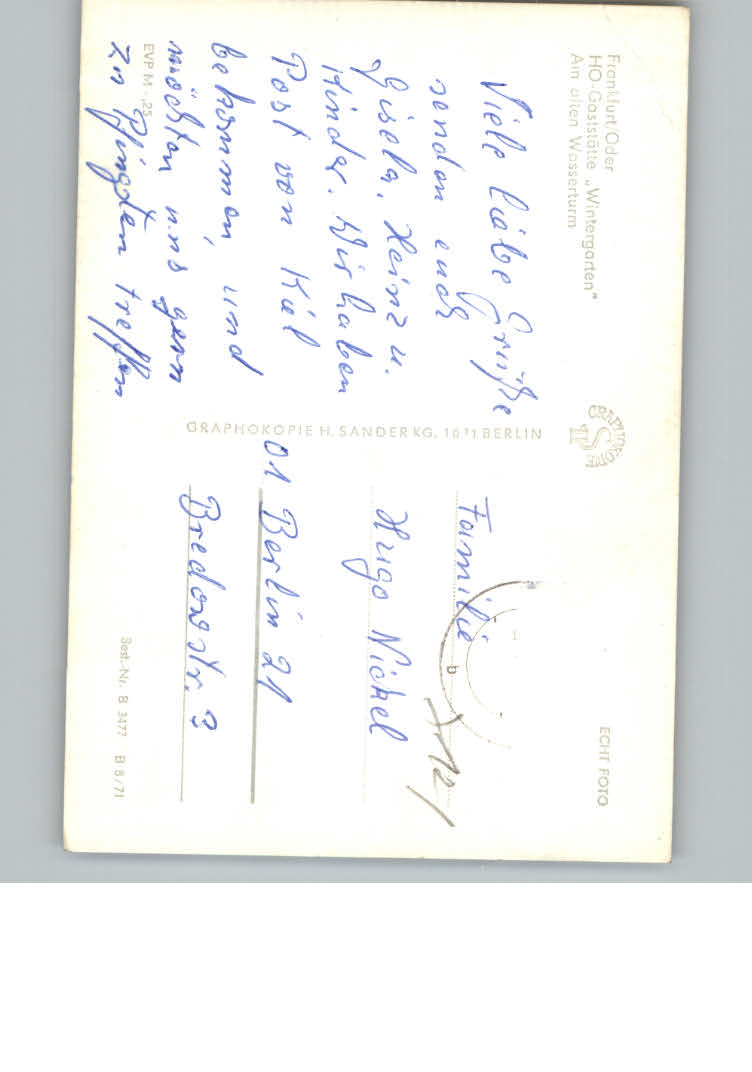 Frankfurt/Oder
HO-Gaststätte „Wintergarten"
Am alten Wasserturm
Viele liebe Grüße
senden euch
Gisela, Heinz u.
Kinder. Wir haben
Post von Kiel
bekommen, und
möchten uns gern
zu Pfingsten treffen
EVP M -,25
GRAPHOKOPIE H. SANDER KG, 1071 BERLIN
GRAPHOKOPIE
HS
ECHT FOTO
b
Familie
Hugo Nickel
01 Berlin 21
Bredowstr. 3
Best.-Nr. B 3477 B 8/71